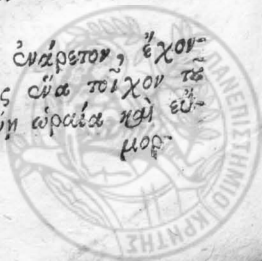 ἐνάρετον, ἔχον-
ς ἕνα τοῖχον τοῦ
ὡραία καὶ εὔ-
μορ-
ΠΑΝΕΠΙΣΤΗΜΙΟ ΚΡΗΤΗΣ